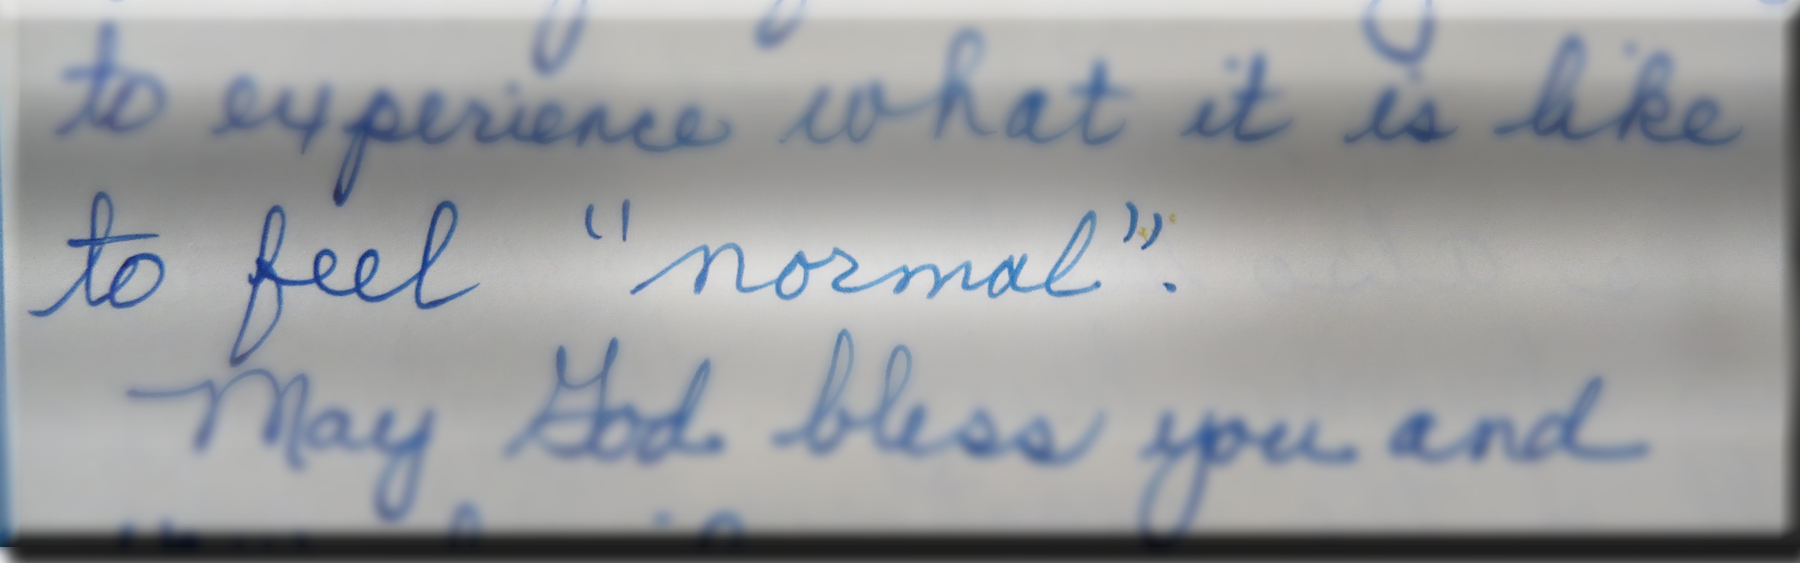 to experience what it is like
to feel "normal".
May God bless you and